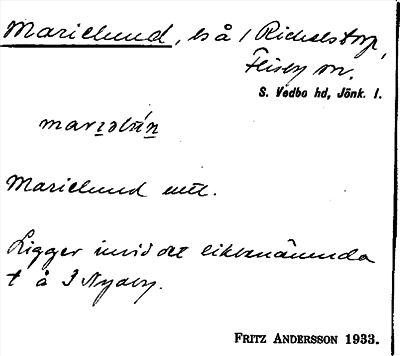 Marielund, ls å 1 Rickelstorp,
Flisby sn.
S. Vedbo hd, Jönk. l.
Marielund uttl.
Ligger invid det likbenämnda
t å 3 Nyaby.
FRITZ ANDERSSON 1933.